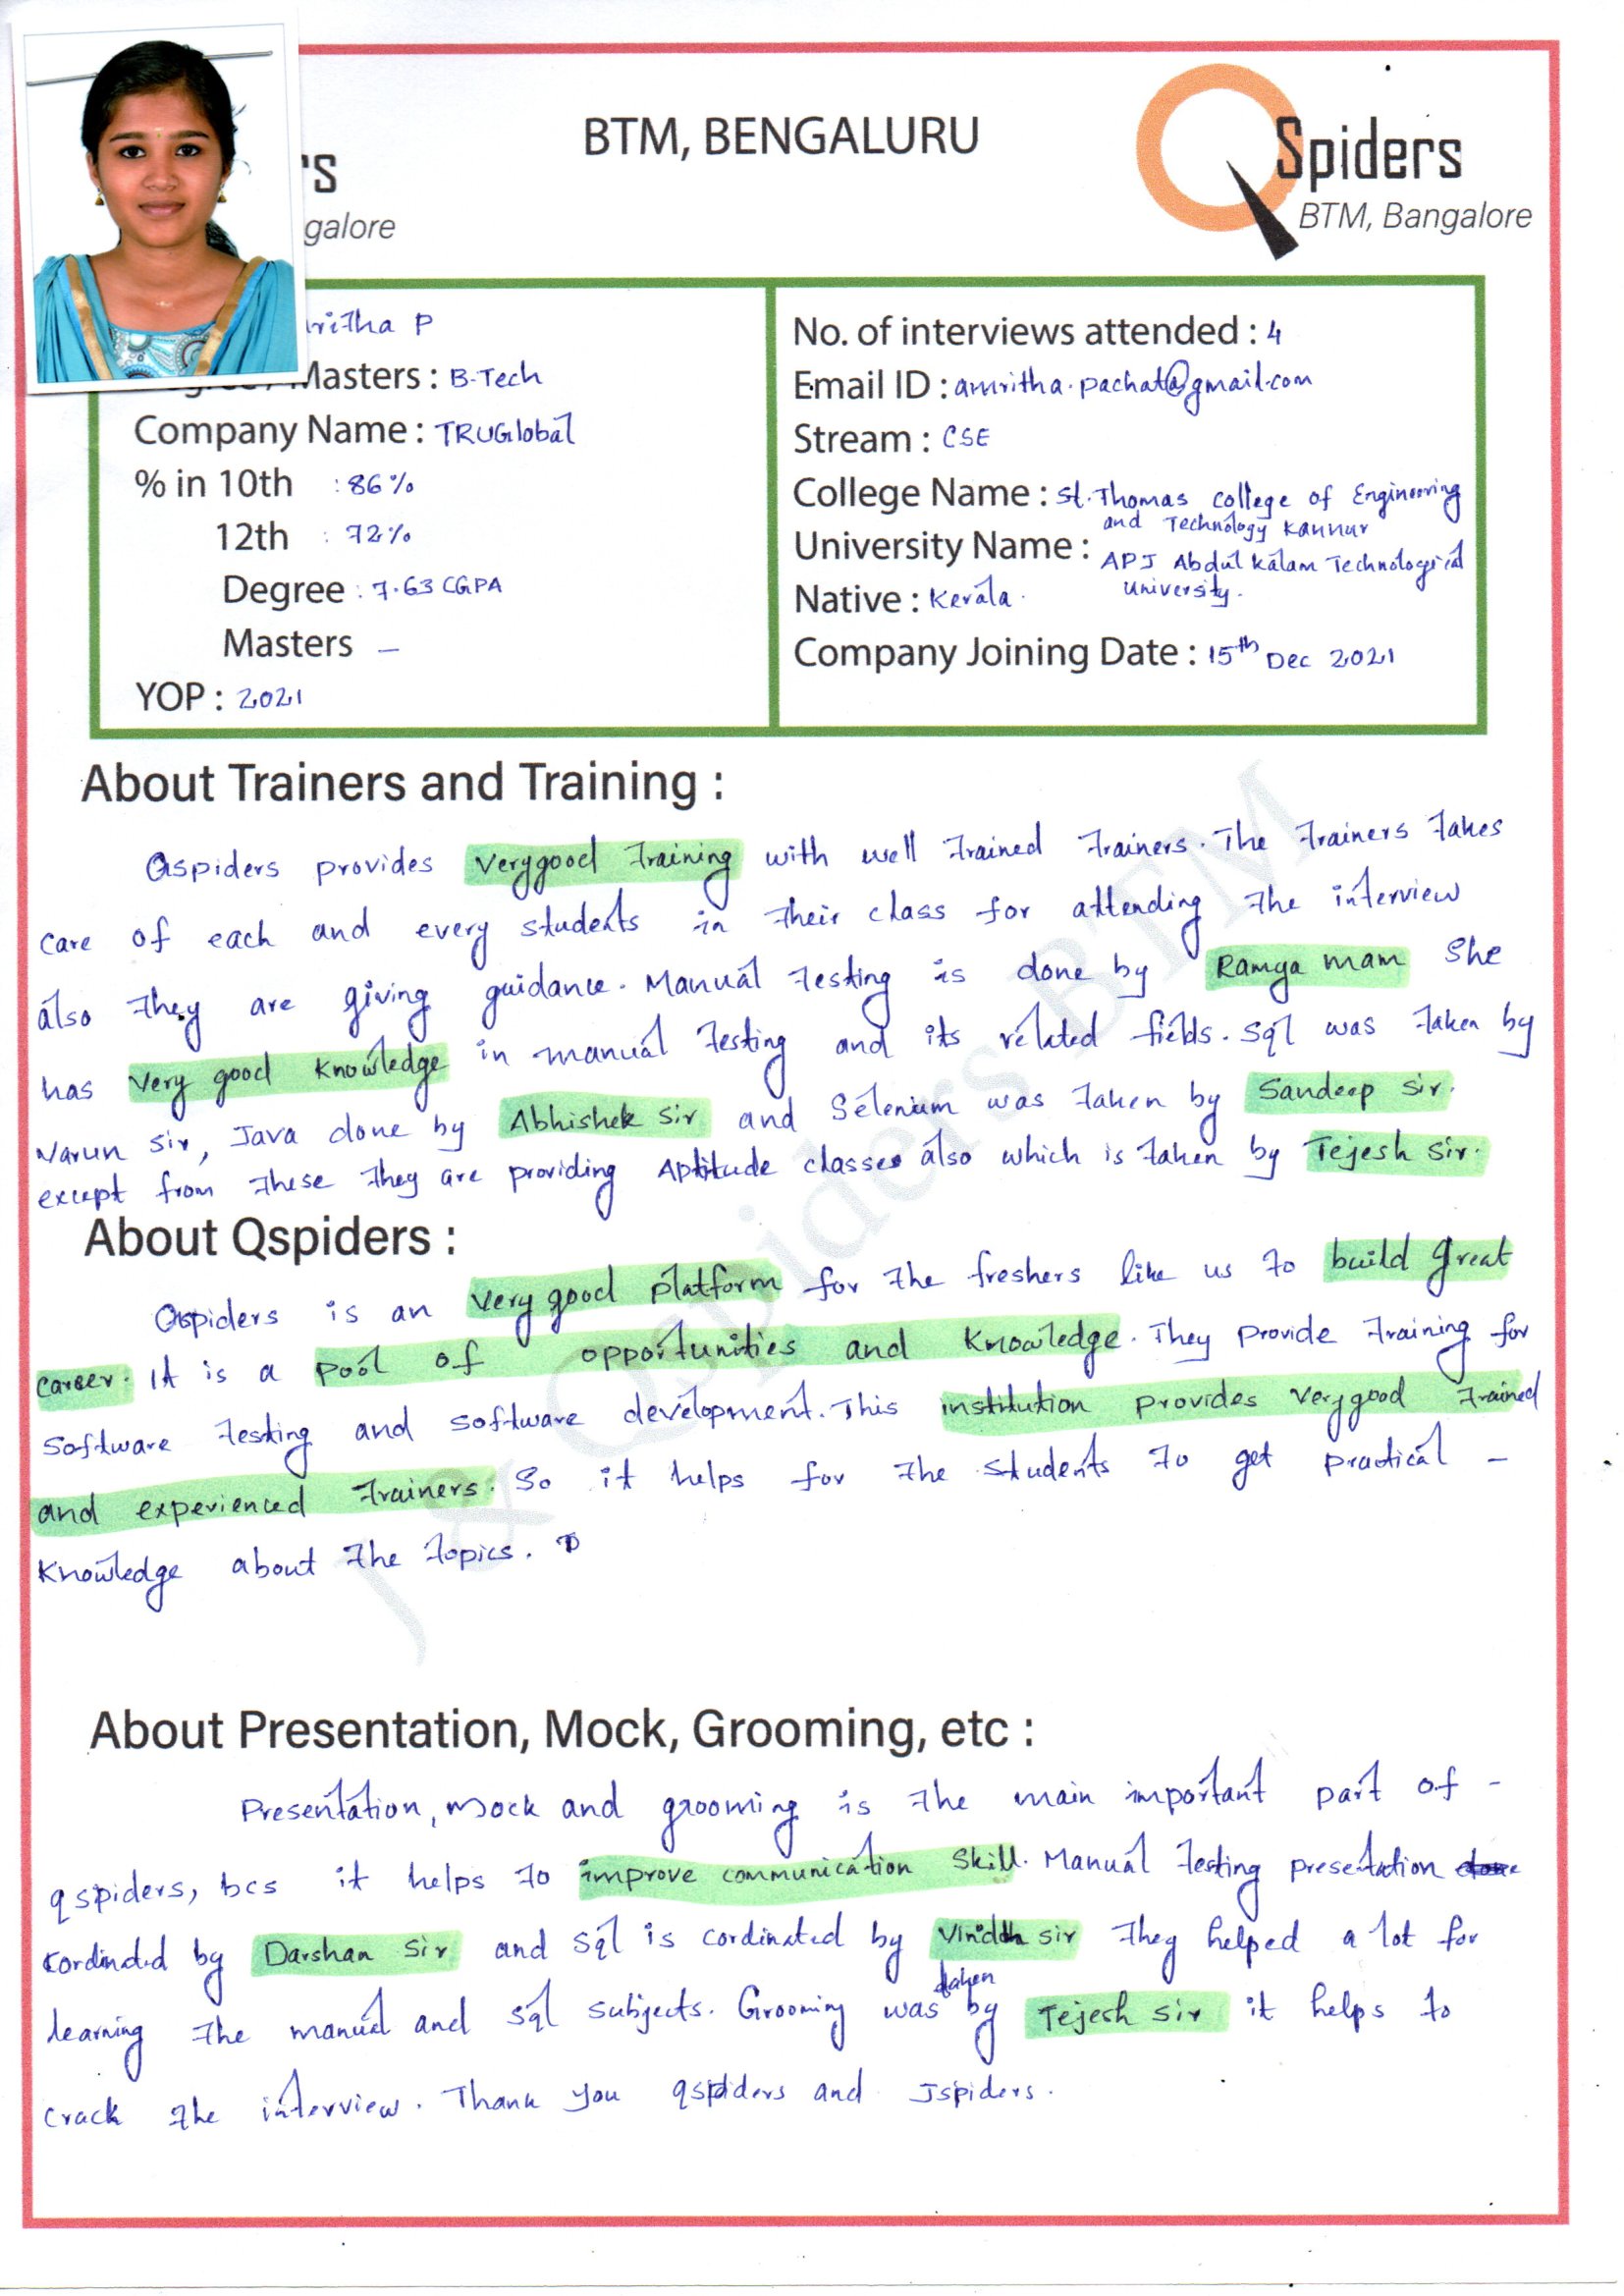 BTM, BENGALURU
Spiders
BTM, Bangalore
rs
galore
ritha P
Masters : B-Tech
Company Name : TRUGlobal
% in 10th : 86%
12th : 72%
Degree : 7.63 CGPA
Masters –
YOP : 2021
No. of interviews attended : 4
Email ID : amritha.pachat@gmail.com
Stream : CSE
College Name : St. Thomas college of Engineering
and Technology Kannur
University Name : APJ Abdul Kalam Technological
University.
Native : Kerala.
Company Joining Date : 15th Dec 2021
About Trainers and Training :
Qspiders provides verygood training with well trained trainers. The trainers takes
care of each and every students in their class for attending the interview
also they are giving guidance. Manual testing is done by Ramya mam She
has very good knowledge in manual testing and its related fields. Sql was taken by
Varun sir, Java done by Abhishek sir and Selenium was taken by Sandeep sir.
except from these they are providing Aptitude classes also which is taken by Tejesh sir.
About Qspiders :
Qspiders is an very good platform for the freshers like us to build great
career. It is a pool of opportunities and knowledge. They provide training for
software testing and software development. This institution provides verygood trained
and experienced trainers. So it helps for the students to get practical –
knowledge about the topics.
J & Qspiders BTM
About Presentation, Mock, Grooming, etc :
Presentation, mock and grooming is the main important part of –
qspiders, bcs it helps to improve communication skill. Manual testing presentation
cordinded by Darshan sir and sql is cordinated by sir they helped a lot for
learning the manual and sql subjects. Grooming was taken by Tejesh sir it helps to
crack the interview. Thank you qspiders and Jspiders.